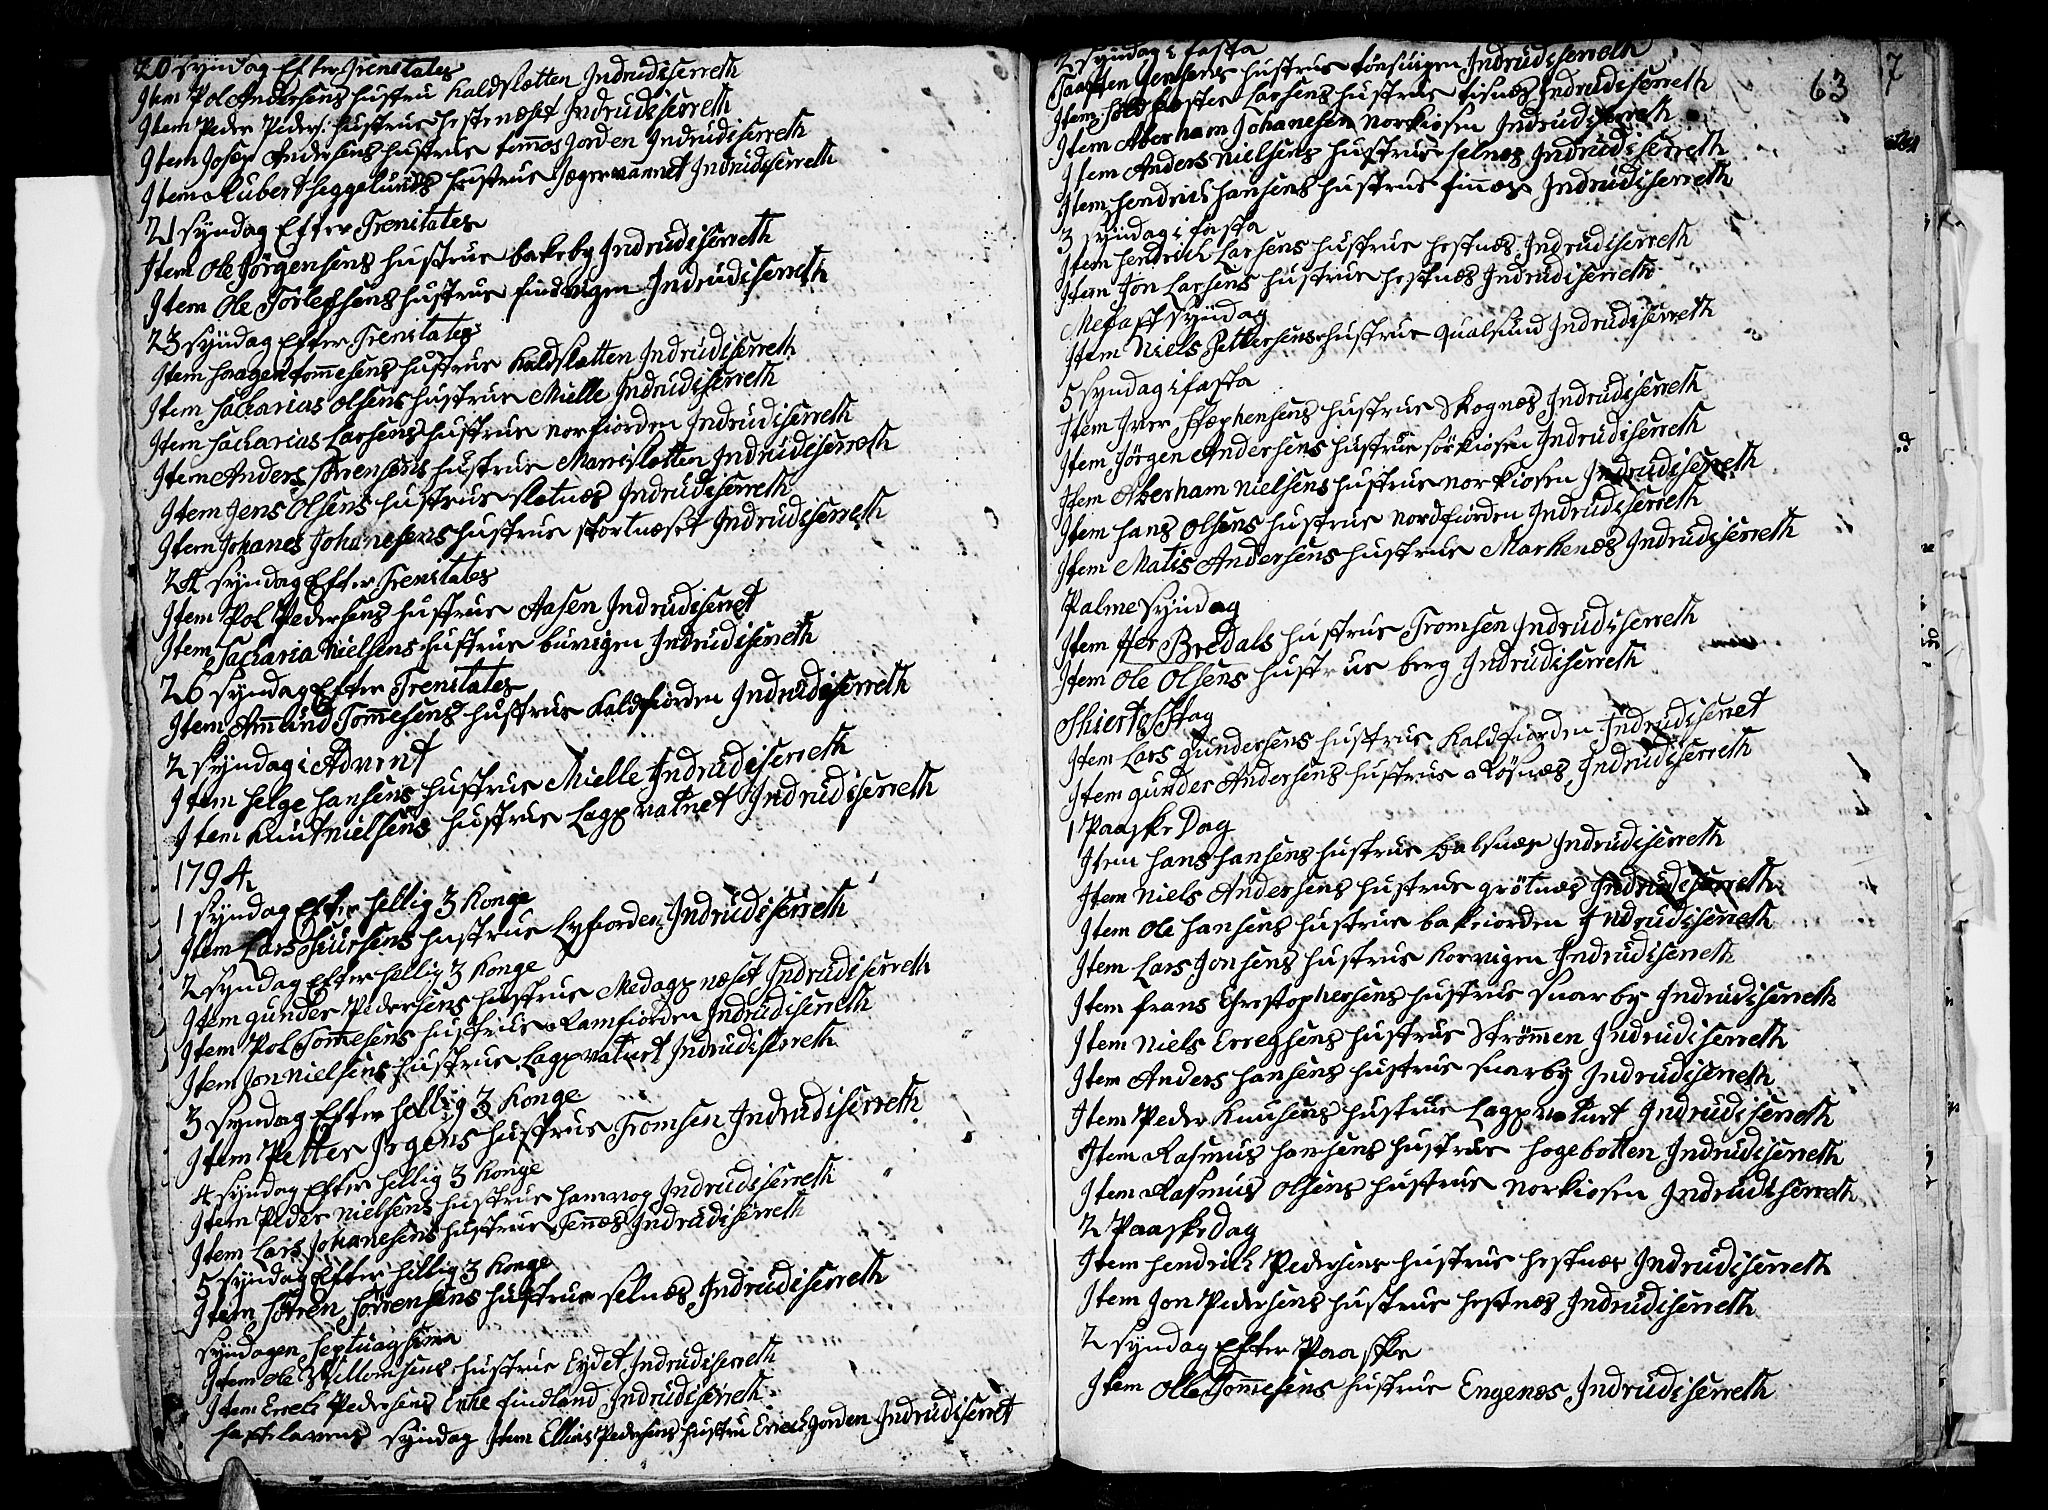 20 Syndag Efter Trenitates
Item Pol Andersens hustru Kaldsletten Indrudiserreth
Item Peder Peders: hustrue hestenæset Indrudiserreth
Item Josep Andersens hustrue Jorden Indrudiserreth
Item Rubert heggelunds hustrue Jegervannet Indrudiserreth
21 Syndag Efter Trenitates
Item Ole Jörgensens hustrue bakeby Indrudiserreth
Item Ole Torlefsens hustrue findvigen Indrudiserreth
23 Syndag Efter Trenitates
Item haagen tommesens hustrue Kaldsletten Indrudiserreth
Item Sacharias Olsens hustrue Mielle Indrudiserreth
Item Sacharias Larsens hustrue Norfiorden Indrudiserreth
Item Anders Sörrensens hustrue Marrisletten Indrudiserreth
Item Jens Olsens hustrue sletnæs Indrudiserreth
Item Johanes Johanesens hustrue stortnæset Indrudiserreth
24 Syndag Efter Trenitates
Item Pol Pedersens hustrue Aasen Indrudiserret
Item Sacharia Nielsens hustrue buvigen Indrudiserreth
26 Syndag Efter Trenitates
Item Ammund Tommesens hustrue Kaldfiorden Indrudiserreth
2 Syndag i Advent
Item helge hansens hustrue Mielle Indrudiserreth
Item Knut nielsens hustrue Lagpvatnet Indrudiserreth
1794
1 Syndag Efter hellig 3 Konge
Item Lars Siursens hustrue Lyfiorden Indrudiserreth
2 Syndag Efter hellig 3 Konge
Item gunder Pedersens hustrue Medagpnæset Indrudiserreth
Item Pol Tommesens hustrue Ramfiorden Indrudiserreth
Item Jon Nielsens hustrue Lagpvatnet Indrudiserreth
3 Syndag Efter hellig 3 Konge
Item Petter Irgens hustrue Tromsen Indrudiserreth
4 Syndag Efter hellig 3 Konge
Item Peder Nielsens hustrue hamvog Indrudiserreth
Item Lars Johanesens hustrue Tennes Indrudiserreth
5 Syndag Efter hellig 3 Konge
Item Sören Sörrensens hustrue selnæs Indrudiserreth
Syndagen Septuagsima
Item Ole Willomsens hustrue Eydet Indrudiserreth
Item Errech Pedersens Enke findland Indrudiserreth
fastelavens Syndag Item Ellias Pedersens hustru Errechjorden Indrudiserret
63
7
2 Syndag i fasta
Jensens hustrue tönsuigen Indrudiserreth
Item Larsens hustrue tisnæs Indrudiserreth
Item Aberham Johanesen Norkiosen Indrudiserreth
Item Anders Nielsens hustrue selnæs Indrudiserreth
Item hendrich hansens hustrue finnæs Indrudiserreth
3 Syndag i fasta
Item hendrich Larsens hustrue hestnæs Indrudiserreth
Item Jon Larsens hustrue hestnæs Indrudiserreth
Mefast Syndag
Item Niels Pettersens hustrue Qualsund Indrudiserreth
5 Syndag i fasta
Item Iver Stephensens hustrue Skognæs Indrudiserreth
Item Jörgen Andersens hustrue sörkiosen Indrudiserreth
Item Aberham Nielsens hustrue norkiosen Indrudiserreth
Item hans Olsens hustrue Nordfiorden Indrudiserreth
Item Matis Andersens hustrue Markenæs Indrudiserreth
Palme Syndag
Item Her Bredals hustrue Tromsen Indrudiserreth
Item Ole Olsens hustrue berg Indrudiserreth
Skiertostag
Item Lars gundersens hustrue Kaldfiorden Indrudiserret
Item gunder Andersens hustrue Rösnæs Indrudiserreth
1 Paaske Dag
Item hans hansens hustrue balsnæs Indrudiserreth
Item Niels Andersens hustrue grötnæs Indrudiserreth
Item Ole hansens hustrue bakfiorden Indrudiserreth
Item Lars Jonsens hustrue Korvigen Indrudiserreth
Item frans Chrestophersens hustrue snarby Indrudiserreth
Item Niels Erregsens hustrue Strömmen Indrudiserreth
Item Anders hansens hustrue snarby Indrudiserreth
Item Peder Knusens hustrue Lagpvatnet Indrudiserreth
Item Rasmus hansens hustrue hogebotten Indrudiserreth
Item Rasmus Olsens hustrue Norkiosen Indrudiserreth
2 Paaskedag
Item hendrich Pedersens hustrue hestnæs Indrudiserreth
Item Jon Pedersens hustrue hestnæs Indrudiserreth
2 Syndag Efter Paaske
Item Olle Tommesens hustrue Engenæs Indrudiserreth